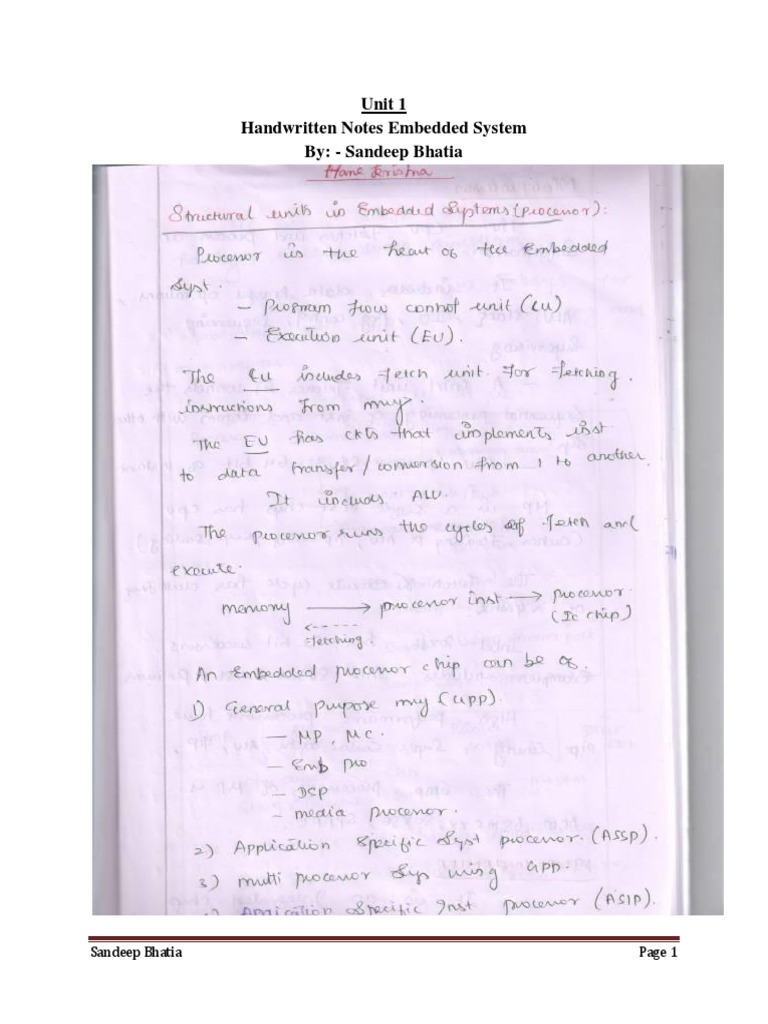 Unit 1
Handwritten Notes Embedded System
By: - Sandeep Bhatia
Hare Krishna
Structural units in Embedded Systems (processor):
Processor is the heart of the Embedded
Syst.
— Program flow control unit (CU)
— Execution unit (EU).
The Cu includes Fetch unit for fetching
instructions from
The EU has ckts that implements inst
to data transfer/conversion from 1 to another.
It includs ALU.
The processor runs the cycles of fetch and
execute.
memory → processor inst → processor.
(Ic chip)
fetching.
An Embedded processor chip can be of.
1) General purpose (GPP).
— MP, MC.
— Emb pro
— DSP
— media processor.
2) Application Specific Syst processor. (ASSP).
3) multi processor Sys using GPP.
Application Specific Inst processor (ASIP).
Sandeep Bhatia
Page 1